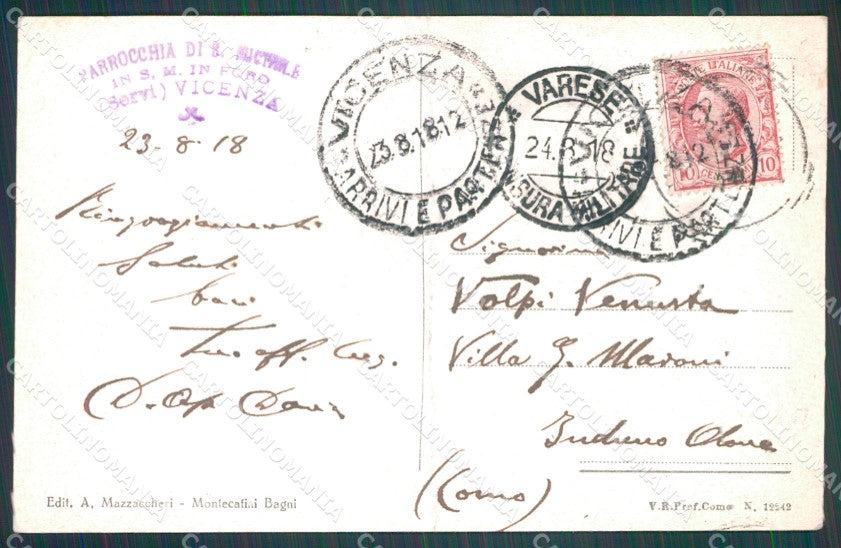 PARROCCHIA DI S. MICHELE
IN S. M. IN FORO
(Servi) VICENZA
23-8-18
Ringraziamenti
Saluti
baci
Tuo aff.
VICENZA
23.8.18.12
ARRIVI E PARTENZE
VARESE
24.8.18
CENSURA MILITARE
POSTE ITALIANE
10 CENT 10
ARRIVI E PARTENZE
Signorina
Volpi Venusta
Villa G. Maroni
Induno Olona
(Como)
Edit. A. Mazzaccheri - Montecatini Bagni
V.R.Pref.Como N. 12242
CARTOLINOMANIA